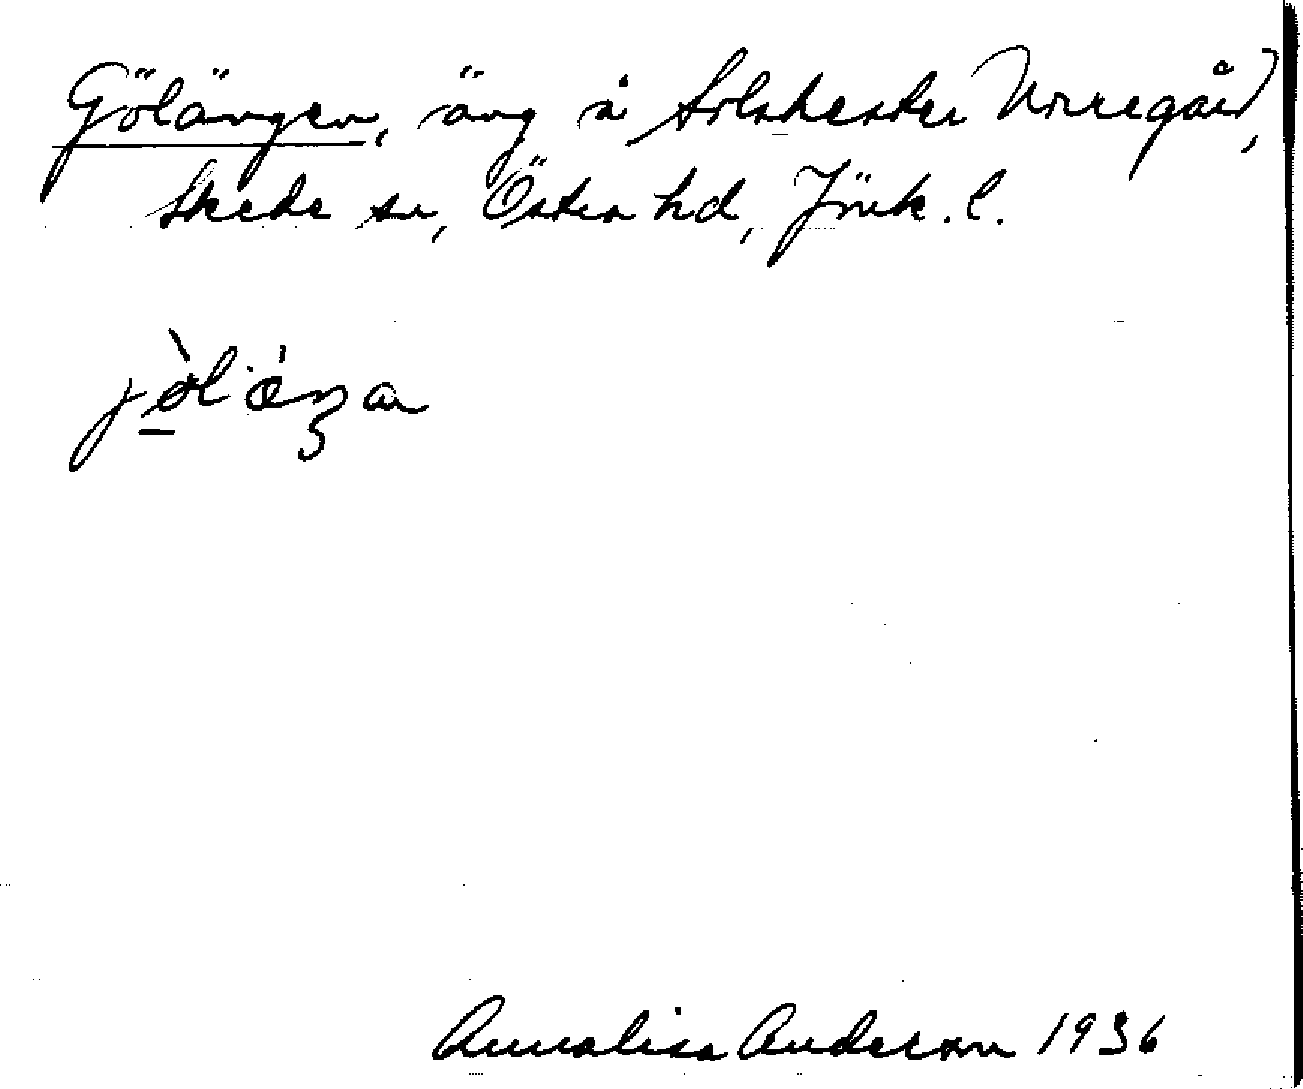 Gölängen, äng å Solskester Norregård,
Skede sn, Östra hd, Jönk. l.
Annalisa Anderson 1936